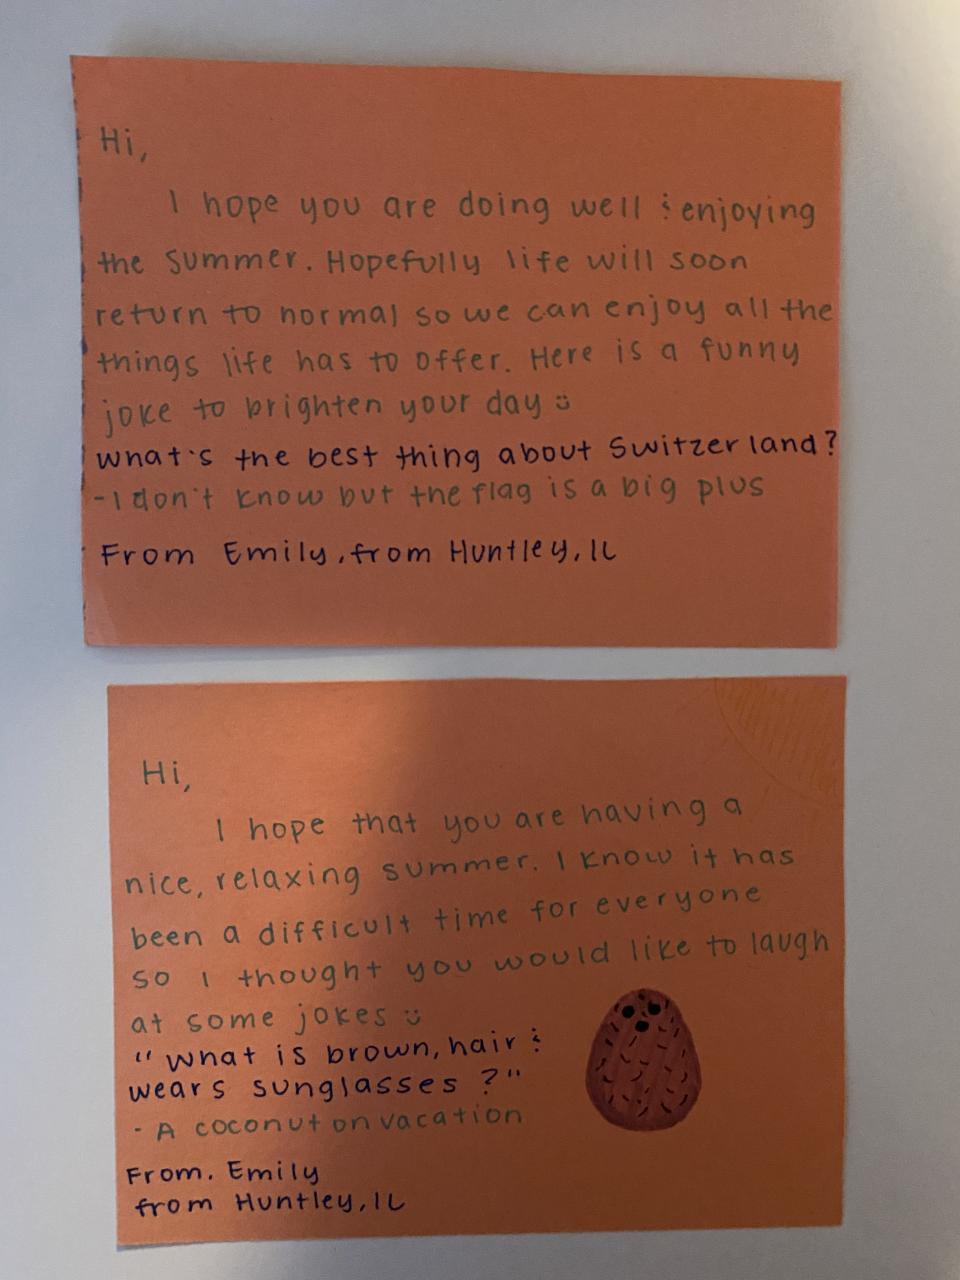 Hi,
I hope you are doing well & enjoying
the summer. Hopefully life will soon
return to normal so we can enjoy all the
things life has to offer. Here is a funny
joke to brighten your day :)
what's the best thing about Switzerland?
-I don't know but the flag is a big plus
From Emily, from Huntley, IL
Hi,
I hope that you are having a
nice, relaxing summer. I know it has
been a difficult time for everyone
so I thought you would like to laugh
at some jokes :)
"What is brown, hair &
wears sunglasses?"
- A coconut on vacation
From. Emily
from Huntley, IL